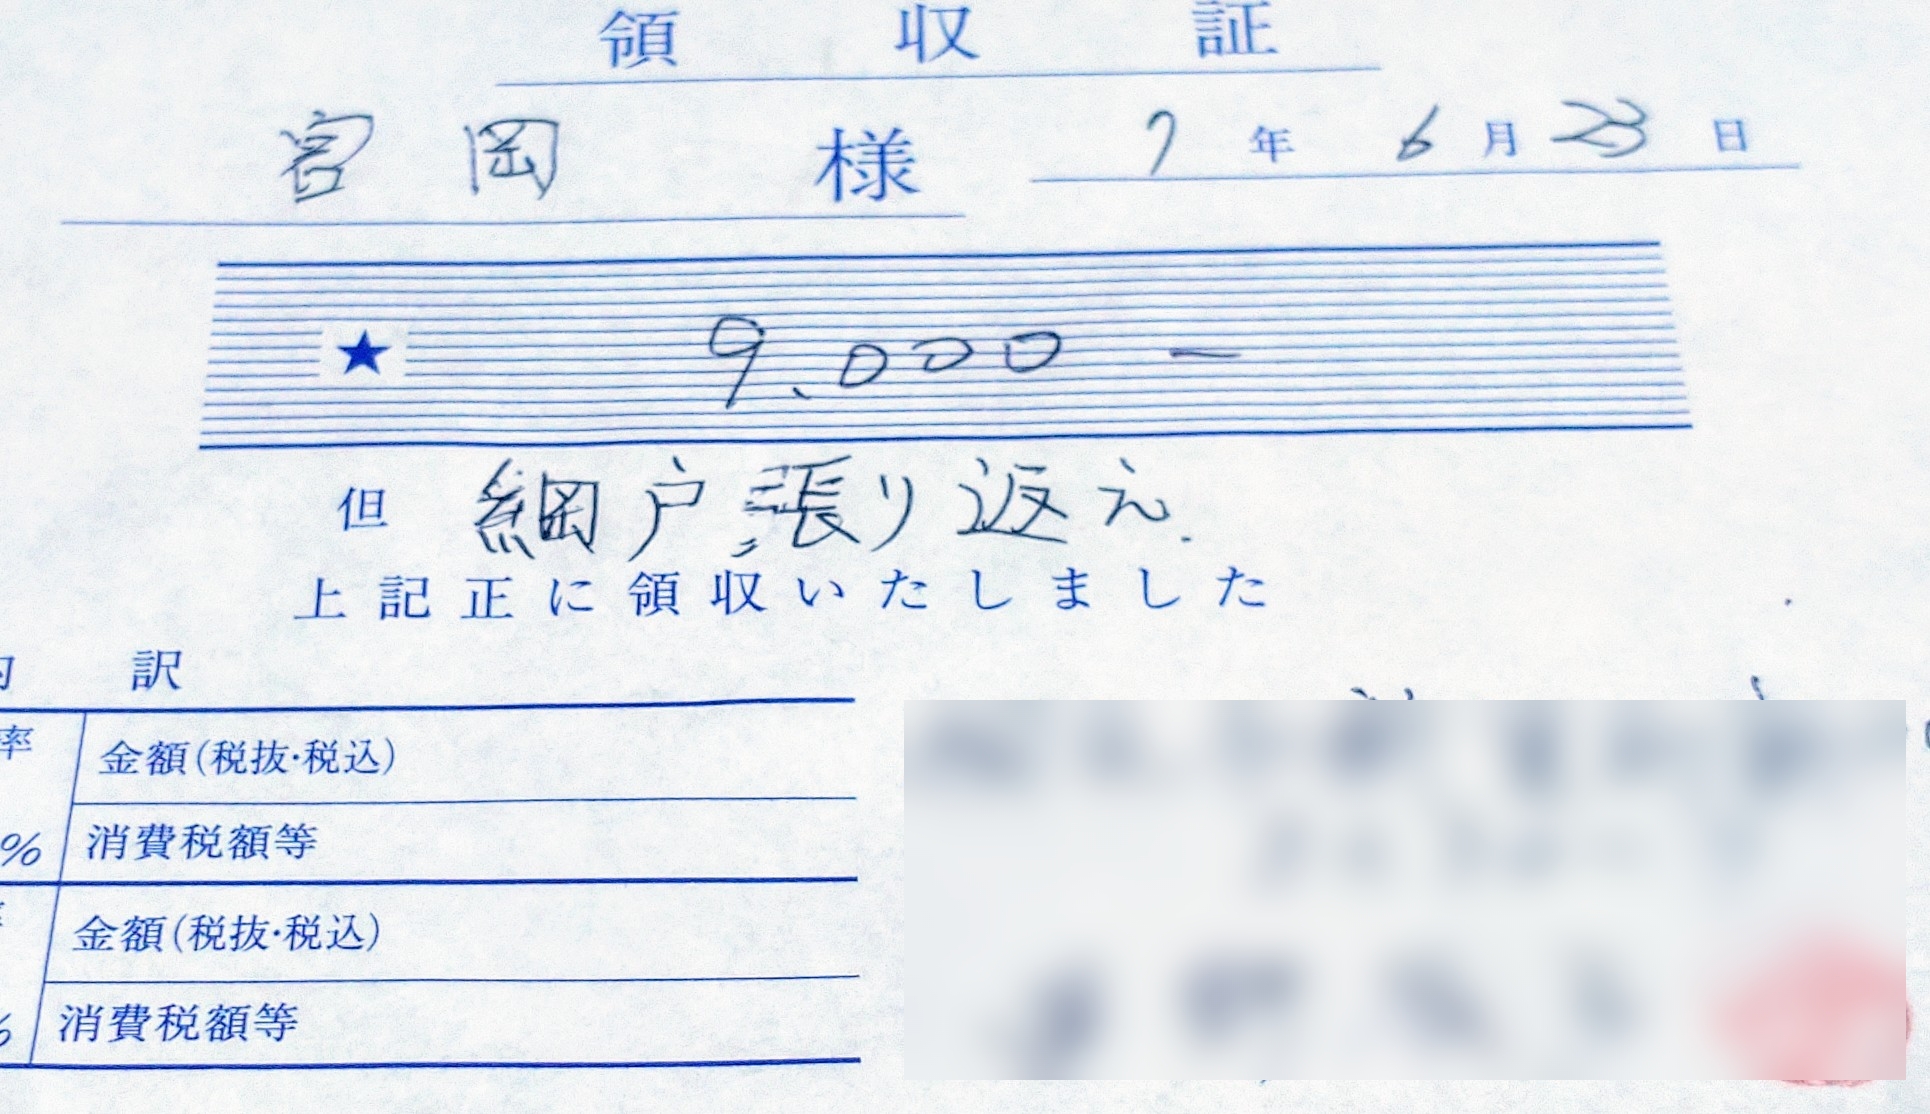 領収証
宮岡 様 7年6月23日
★ 9,000-
但 網戸張り返え.
上記正に領収いたしました
訳
率 金額(税抜・税込)
% 消費税額等
金額(税抜・税込)
% 消費税額等